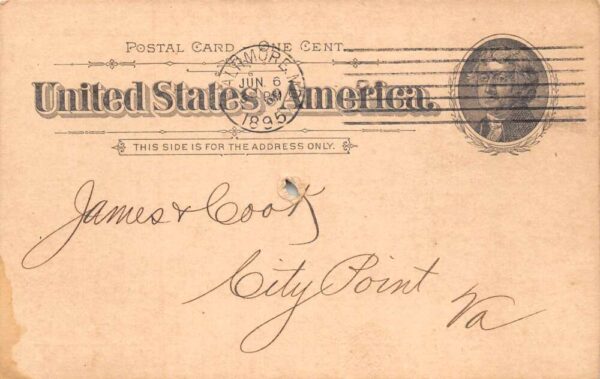 POSTAL CARD ONE CENT.
United States of America.
BALTIMORE, MD.
JUN 6
1895
THIS SIDE IS FOR THE ADDRESS ONLY.
James & Cook
City Point
Va